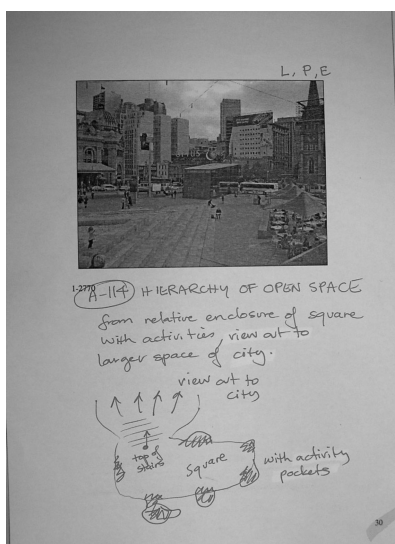 L, P, E
1-2770
A-114 HIERARCHY OF OPEN SPACE
from relative enclosure of square
with activities, view out to
larger space of city.
view out to
city
top of
stairs
square
with activity
pockets
30